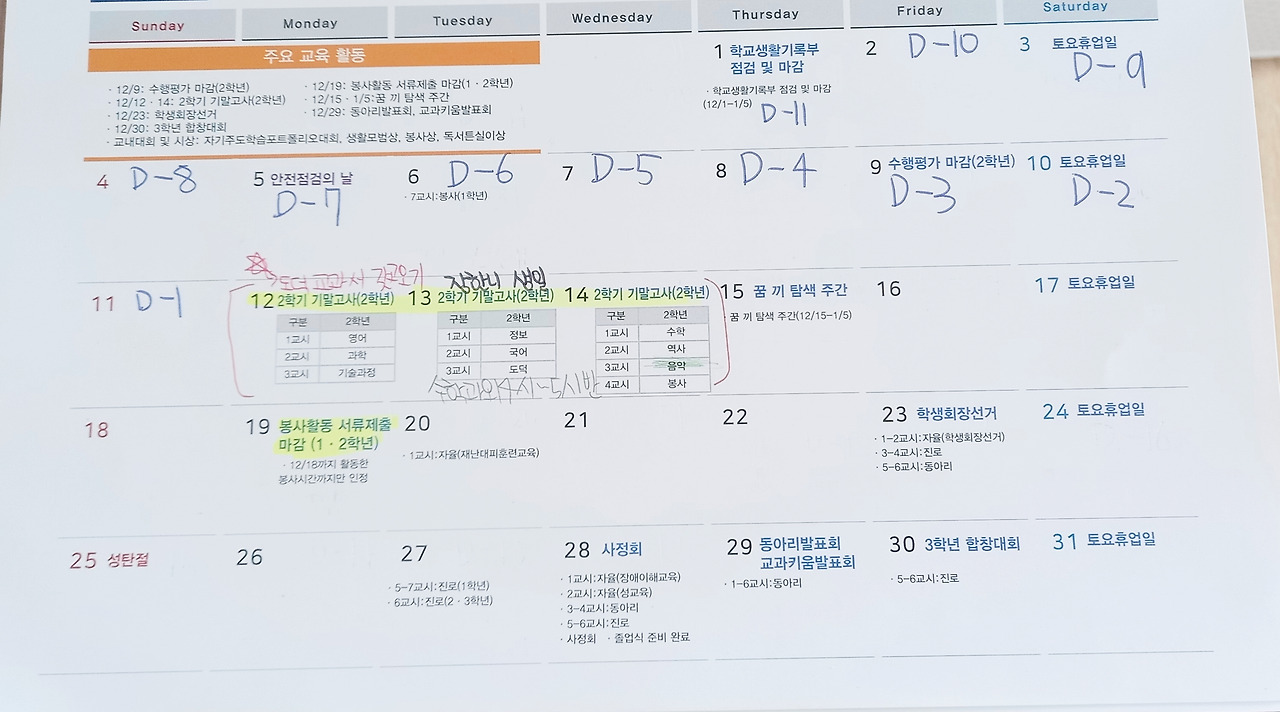 Sunday Monday Tuesday Wednesday Thursday Friday Saturday
주요 교육 활동
· 12/9: 수행평가 마감(2학년)
· 12/12 · 14: 2학기 기말고사(2학년)
· 12/23: 학생회장선거
· 12/30: 3학년 합창대회
· 12/19: 봉사활동 서류제출 마감(1 · 2학년)
· 12/15 · 1/5:꿈 끼 탐색 주간
· 12/29: 동아리발표회, 교과키움발표회
· 교내대회 및 시상: 자기주도학습포트폴리오대회, 생활모범상, 봉사상, 독서튼실이상
1 학교생활기록부
점검 및 마감
· 학교생활기록부 점검 및 마감
(12/1-1/5)
D-11
2 D-10
3 토요휴업일
D-9
4 D-8
5 안전점검의 날
D-7
6 D-6
· 7교시:봉사(1학년)
7 D-5
8 D-4
9 수행평가 마감(2학년)
D-3
10 토요휴업일
D-2
11 D-1
도덕 교과서 갖고오기
12 2학기 기말고사(2학년)
구분 2학년
1교시 영어
2교시 과학
3교시 기술과정
장하니 생일
13 2학기 기말고사(2학년)
구분 2학년
1교시 정보
2교시 국어
3교시 도덕
수학과외4시~5시반
14 2학기 기말고사(2학년)
구분 2학년
1교시 수학
2교시 역사
3교시 음악
4교시 봉사
15 꿈 끼 탐색 주간
· 꿈 끼 탐색 주간(12/15-1/5)
16
17 토요휴업일
18
19 봉사활동 서류제출
마감 (1 · 2학년)
· 12/18까지 활동한
봉사시간까지만 인정
20
· 1교시:자율(재난대피훈련교육)
21
22
23 학생회장선거
· 1-2교시:자율(학생회장선거)
· 3-4교시:진로
· 5-6교시:동아리
24 토요휴업일
25 성탄절
26
27
· 5-7교시:진로(1학년)
· 6교시:진로(2 · 3학년)
28 사정회
· 1교시:자율(장애이해교육)
· 2교시:자율(성교육)
· 3-4교시:동아리
· 5-6교시:진로
· 사정회 · 졸업식 준비 완료
29 동아리발표회
교과키움발표회
· 1-6교시:동아리
30 3학년 합창대회
· 5-6교시:진로
31 토요휴업일